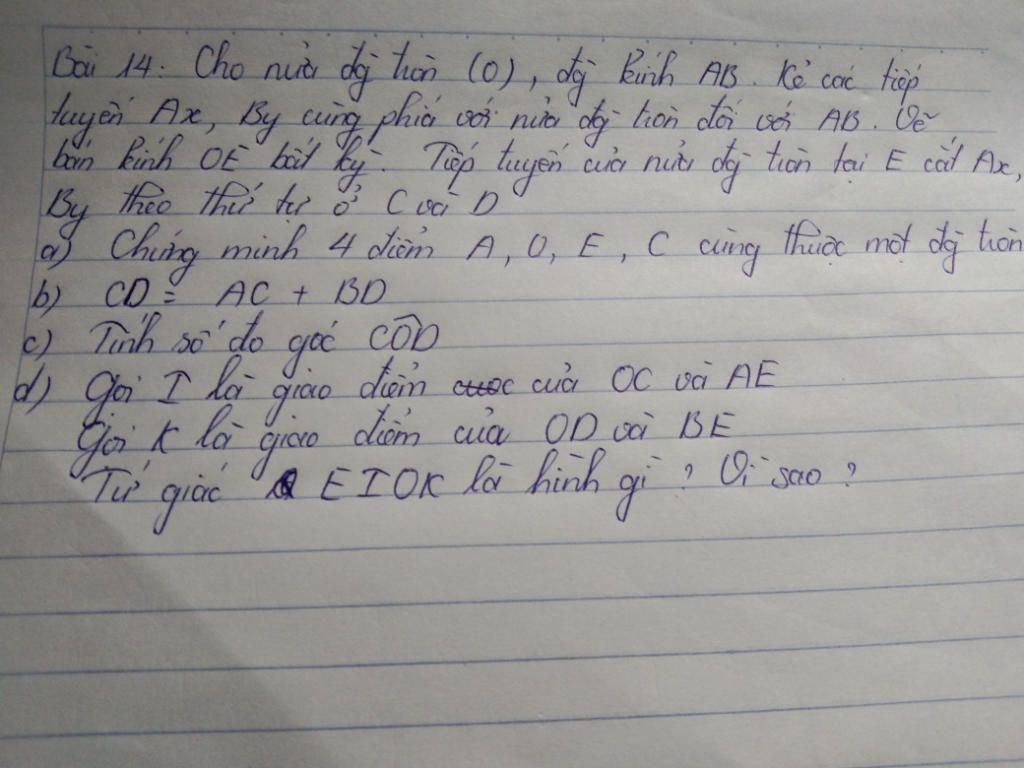 Bài 14: Cho nửa đg tròn (O), đg kính AB. Kẻ các tiếp
tuyến Ax, By cùng phía với nửa đg tròn đối với AB. Vẽ
bán kính OE bất kỳ. Tiếp tuyến của nửa đg tròn tại E cắt Ax,
By theo thứ tự ở C và D
a) Chứng minh 4 điểm A, O, E, C cùng thuộc một đg tròn
b) CD = AC + BD
c) Tính số đo góc CÔD
d) Gọi I là giao điểm của OC và AE
Gọi K là giao điểm của OD và BE
Tứ giác EIOK là hình gì? Vì sao?